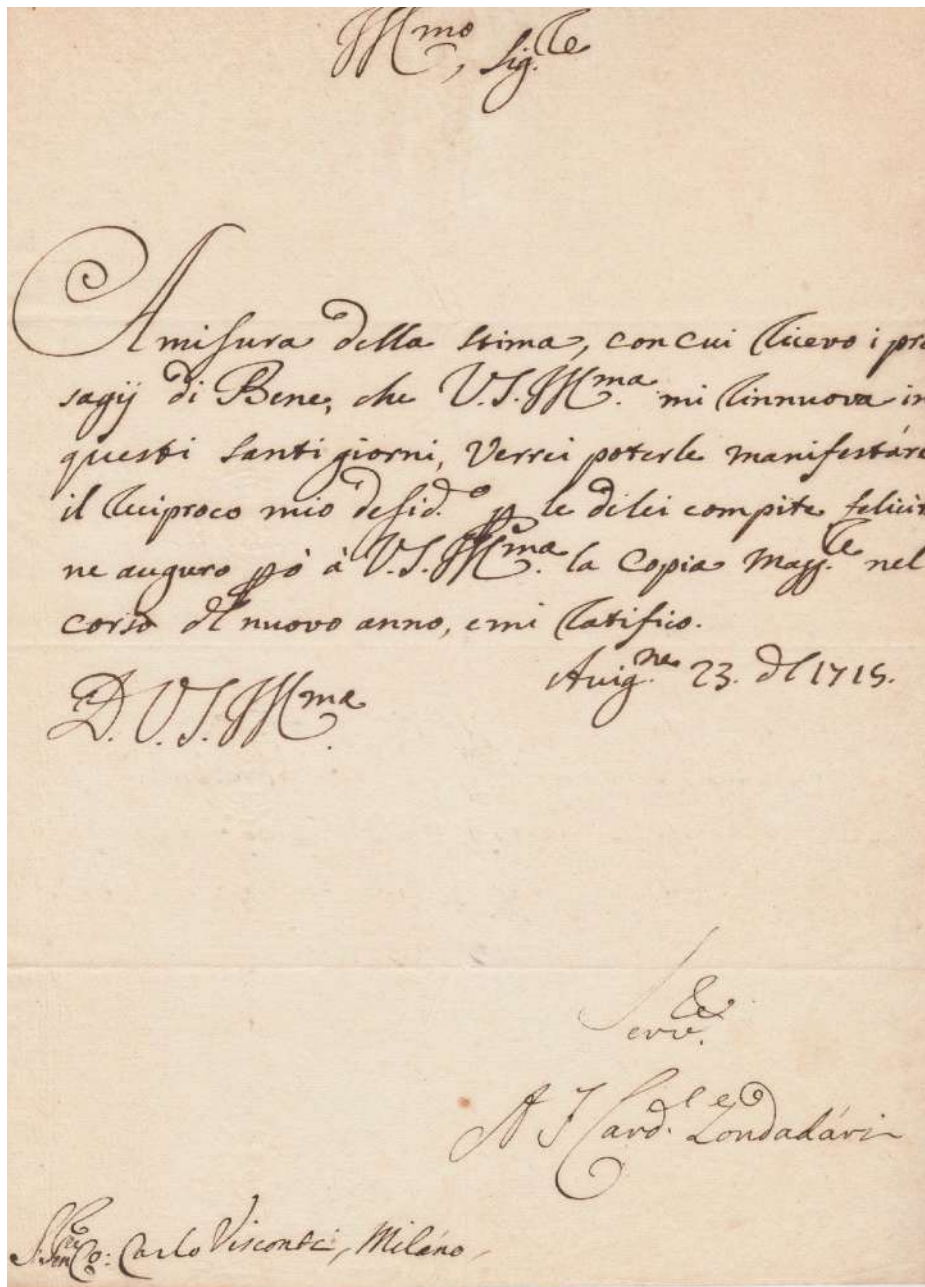 Ill.mo, Sig.re
A misura della stima, con cui ricevo i pre
sagij di Bene, che V.S. Ill.ma mi rinnuova in
questi santi giorni, Verrei poterle manifestáre
il reciproco mio desid.o p le di lei compite felicit
ne auguro pò à V.S. Ill.ma la Copia magg.re nel
corso dl nuovo anno, e mi ratifico.
D. V. S. Ill.ma
23. dl 1715.
Serv.re
A F Card.le Zondadári
Carlo Visconti, Miláno